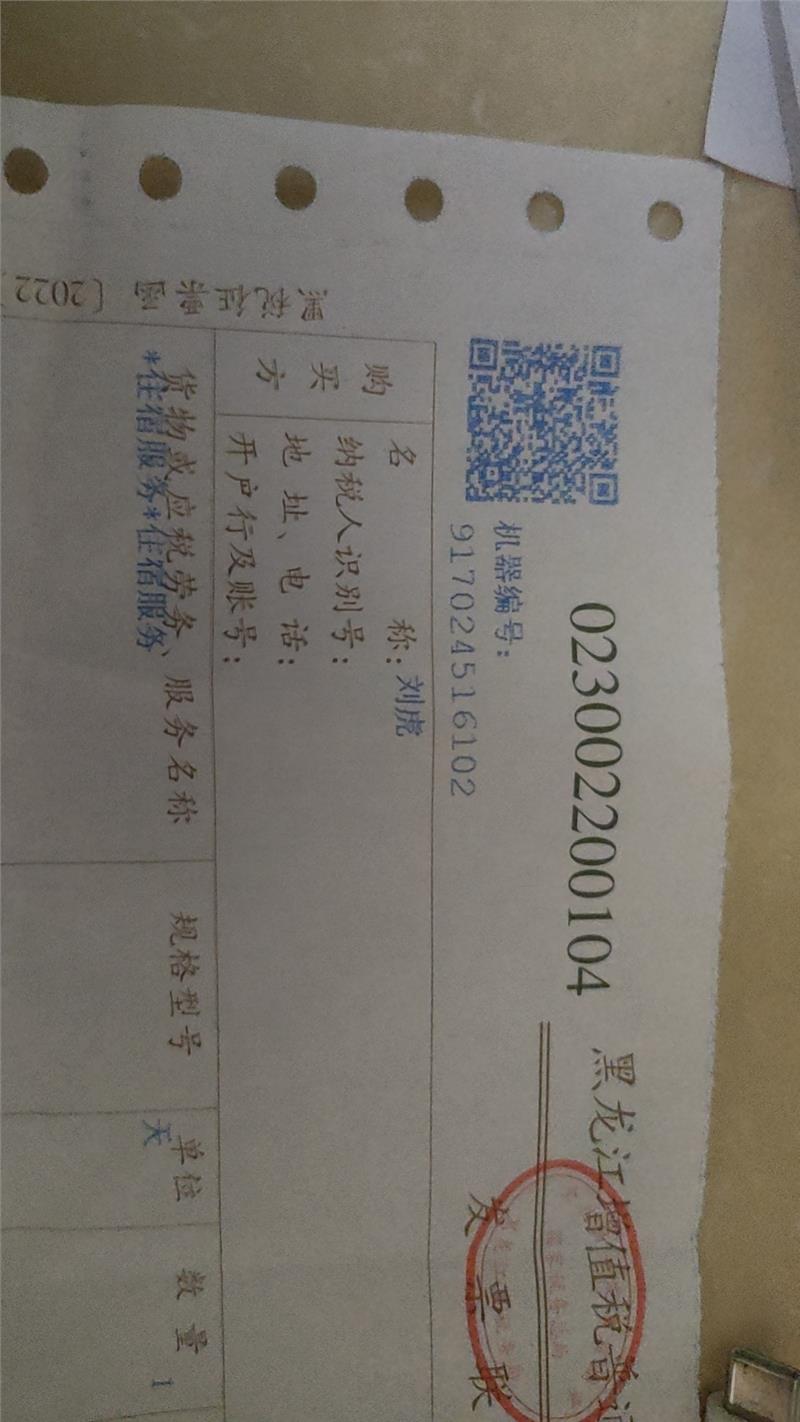 023002200104
黑龙江增值税普
发票联
机器编号：
917024516102
购买方
名称：刘虎
纳税人识别号：
地址、电话：
开户行及账号：
货物或应税劳务、服务名称 规格型号 单位 数量
*住宿服务*住宿服务 天 1
〔2022〕